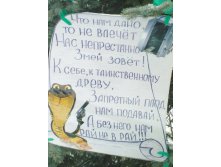 Что нам дано,
то не влечёт
Нас непрестанно
Змей зовёт!
К себе, к таинственному
древу.
Запретный плод
нам подавай.
А без него нам
рай не в рай!!!